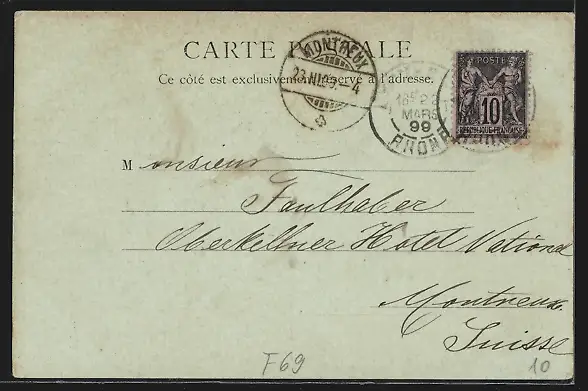 CARTE POSTALE
Ce côté est exclusivement réservé à l'adresse.
MONTREUX
23.III.99.-4
MARS
99
RHONE
POSTE
10
REPUBLIQUE FRANCAISE
Monsieur
Faulhaber
Oberkellner Hotel National
Montreux
Suisse
F69
10